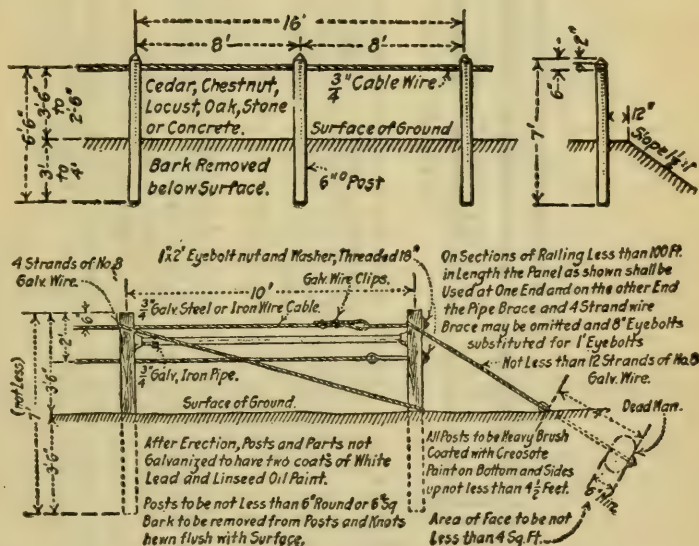 16'
8' 8'
Cedar, Chestnut,
Locust, Oak, Stone
or Concrete.
3/4" Cable Wire
Surface of Ground
Bark Removed
below Surface.
6" Post
6'6"
3'-6"
to
2'-6"
3'
to
4'
2"
6"
7'
12"
Slope 1½:1
4 Strands of No.8
Galv. Wire.
1"x2' Eyebolt nut and Washer, Threaded 18"
Galv. Wire Clips.
10'
3/4" Galv. Steel or Iron Wire Cable.
3/4" Galv. Iron Pipe.
Surface of Ground.
6"
2'
(not less)
7'
3'-6"
3'-6"
On Sections of Railing Less than 100 Ft.
in Length the Panel as shown shall be
Used at One End and on the other End
the Pipe Brace and 4 Strand wire
Brace may be omitted and 8" Eyebolts
substituted for 1' Eyebolts
Not Less than 12 Strands of No.8
Galv. Wire.
Dead Man.
After Erection, Posts and Parts not
Galvanized to have two coats of White
Lead and Linseed Oil Paint.
Posts to be not Less than 6" Round or 6" Sq
Bark to be removed from Posts and Knots
hewn flush with Surface.
All Posts to be Heavy Brush
Coated with Creosote
Paint on Bottom and Sides
up not less than 4½ Feet.
6" Min.
Area of Face to be not
Less than 4 Sq. Ft.